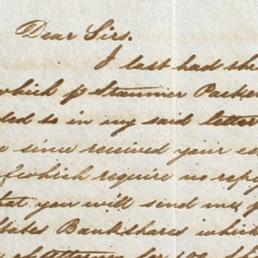 Dear Sirs.
I last had th
which p Steamer Packe
ded to in my said letter
e since received your es
f which require no rep
hat you will send me, p
tates Bank shares which